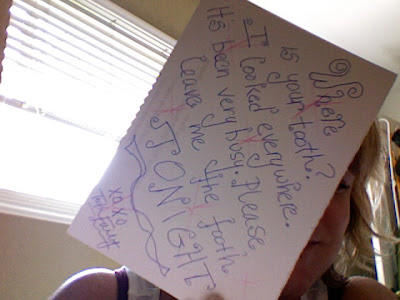 Where
is your tooth?
I looked everywhere.
It's been very busy. Please
leave me the tooth
TONIGHT
xoxo
Tooth Fairy